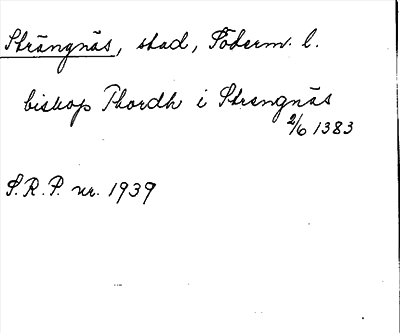 Strängnäs, stad, Söderm. l.
biskop Thordh i Strengnäs
2/6 1383
S.R.P. nr. 1939